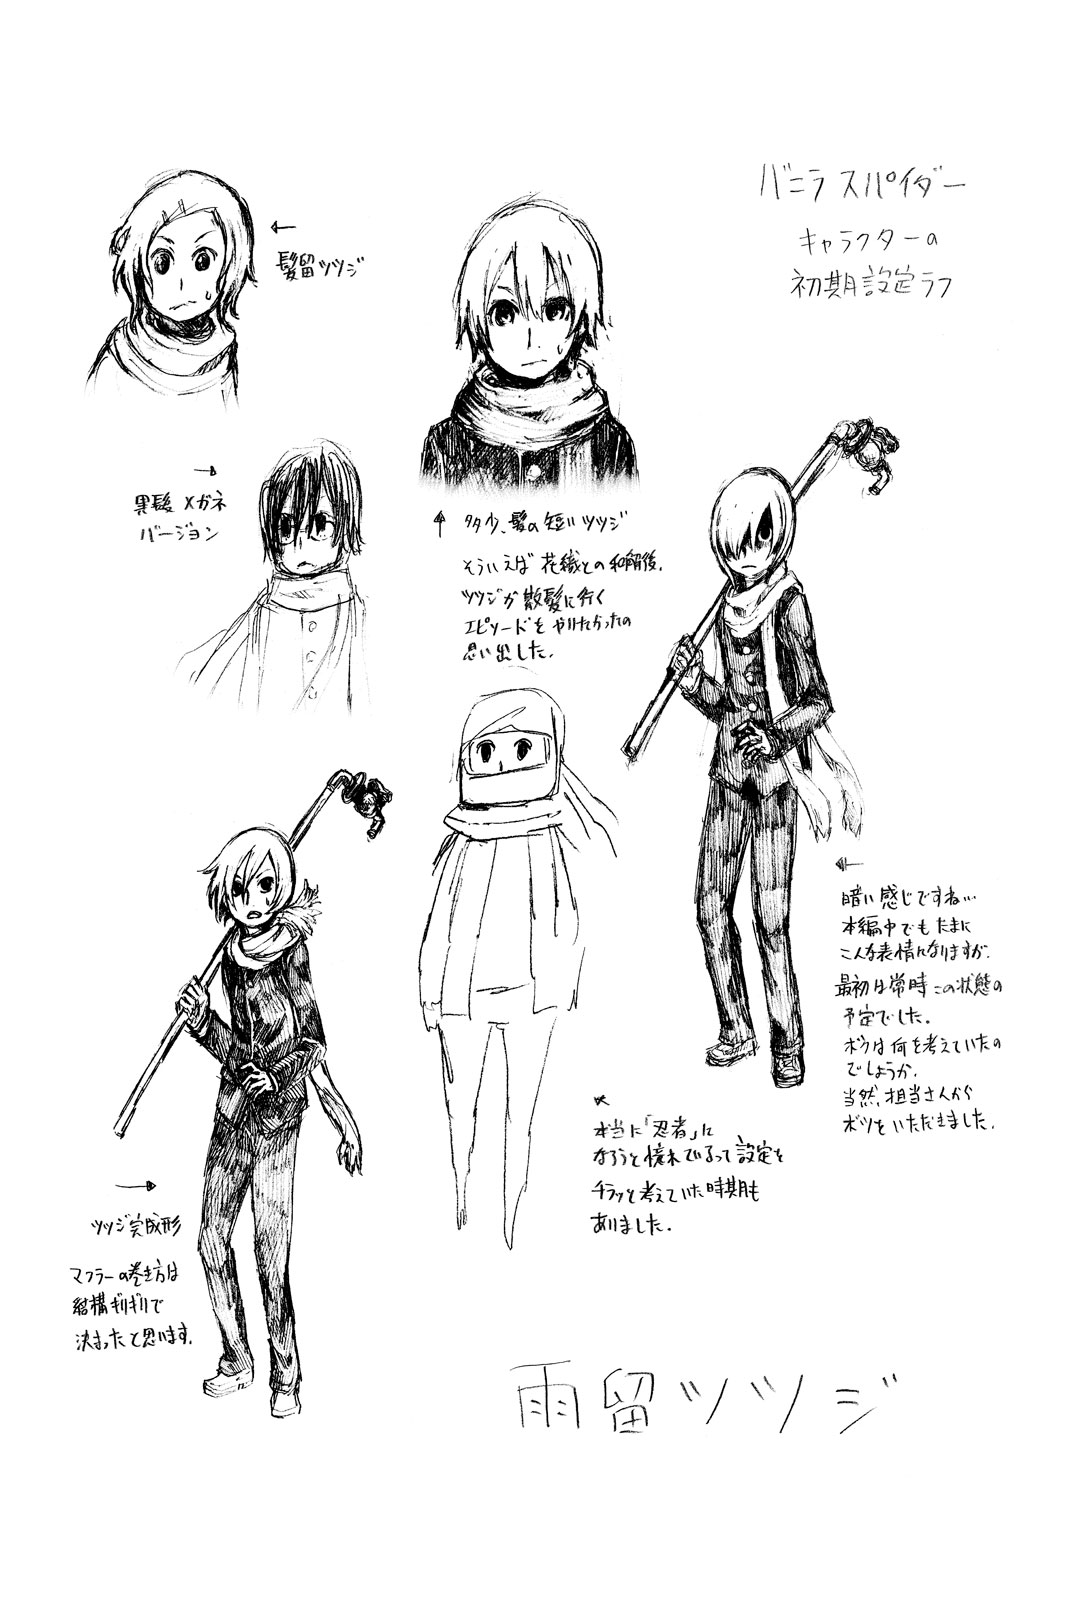 バニラスパイダー
キャラクターの
初期設定ラフ
髪留ツツジ
黒髪メガネ
バージョン
多少、髪の短いツツジ
そういえば花織との和解後、
ツツジが散髪に行く
エピソードをやりたかったの
思い出した。
暗い感じですね…
本編中でもたまに
こんな表情になりますが、
最初は常時この状態の
予定でした。
ボクは何を考えていたの
でしょうか。
当然、担当さんから
ボツをいただきました。
本当に「忍者」に
なろうと憧れているって設定を
チラッと考えていた時期も
ありました。
ツツジ完成形
マフラーの巻き方は
結構ギリギリで
決まったと思います。
雨留ツツジ